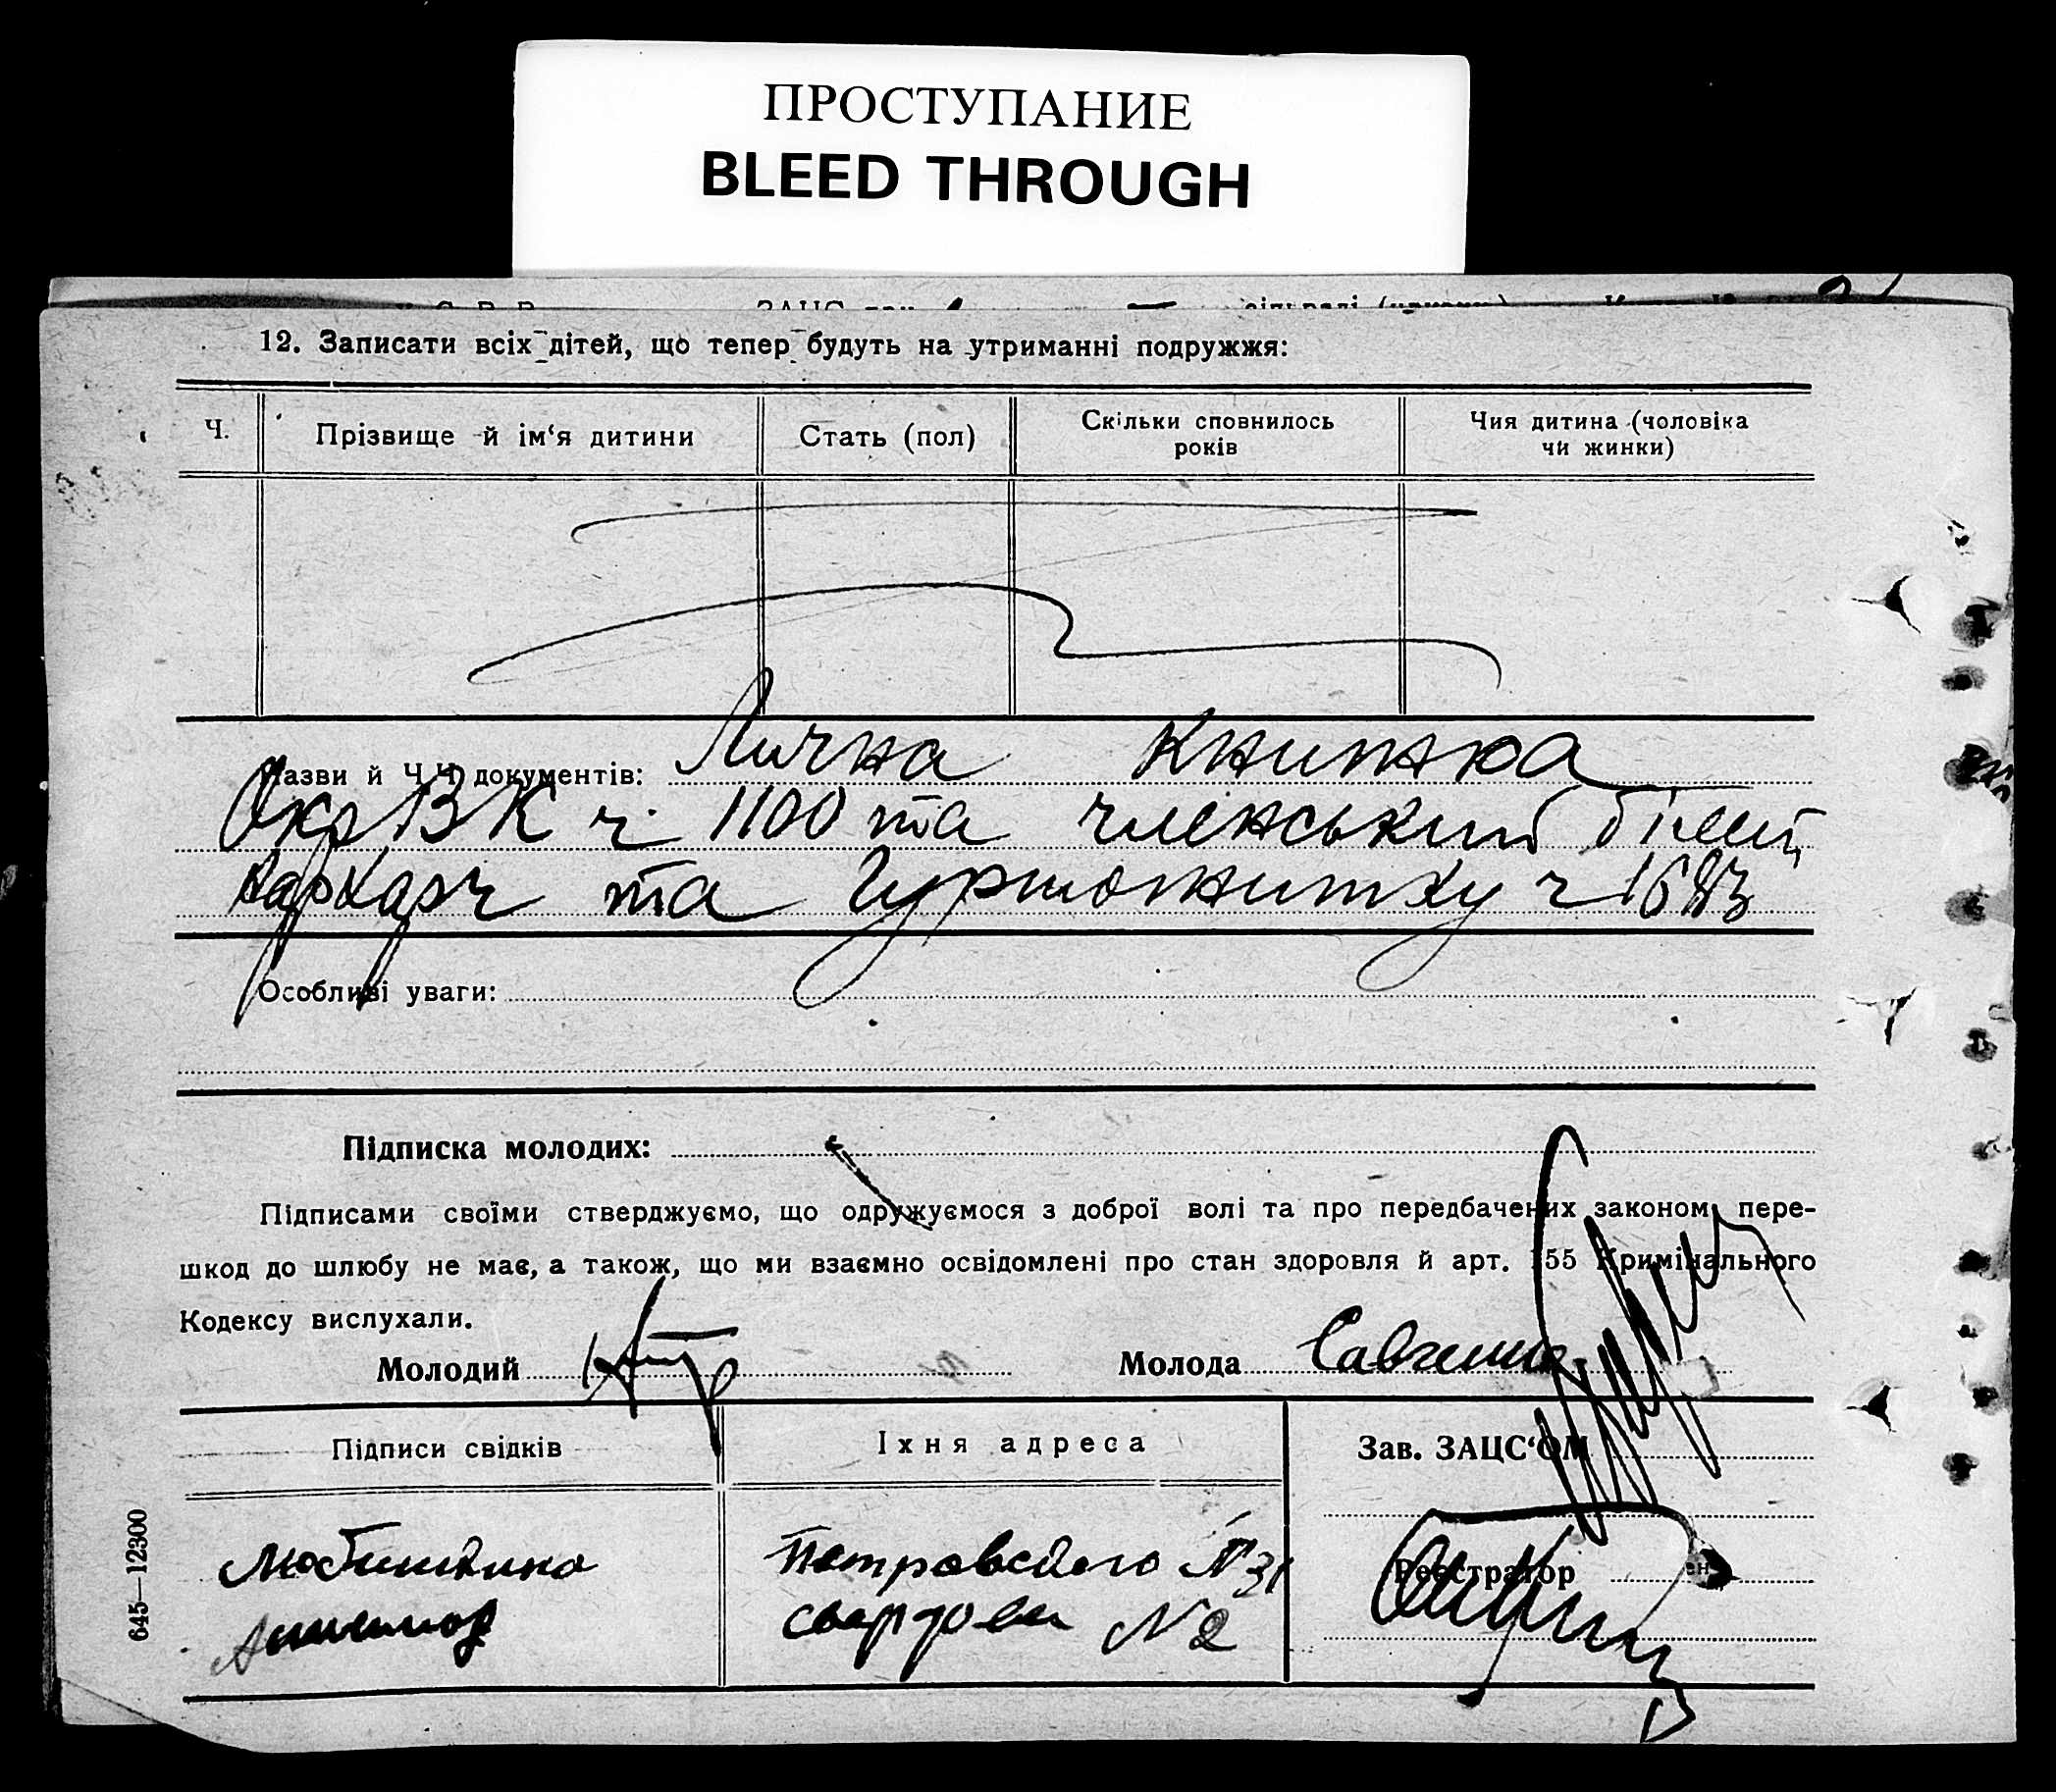 ПРОСТУПАНИЕ
BLEED THROUGH
12. Записати всіх дітей, що тепер будуть на утриманні подружжя:
Ч.
Прізвище й ім'я дитини
Стать (пол)
Скільки сповнилось
років
Чия дитина (чоловіка
чи жинки)
Назви й Ч.Ч. документів: Лична Книжка
ОкрВК ч. 1100 та членський білет
та Гуртожитку ч
Особливі уваги:
Підписка молодих:
Підписами своїми стверджуємо, що одружуємося з доброї волі та про передбачених законом пере-
шкод до шлюбу не має, а також, що ми взаємно освідомлені про стан здоровля й арт. 155 Кримінального
Кодексу вислухали.
Молодий
Молода Савченко
Підписи свідків
Їхня адреса
Зав. ЗАЦС'ОМ
Реєстратор
Петровського № 31
Свердлова № 2
645—12300